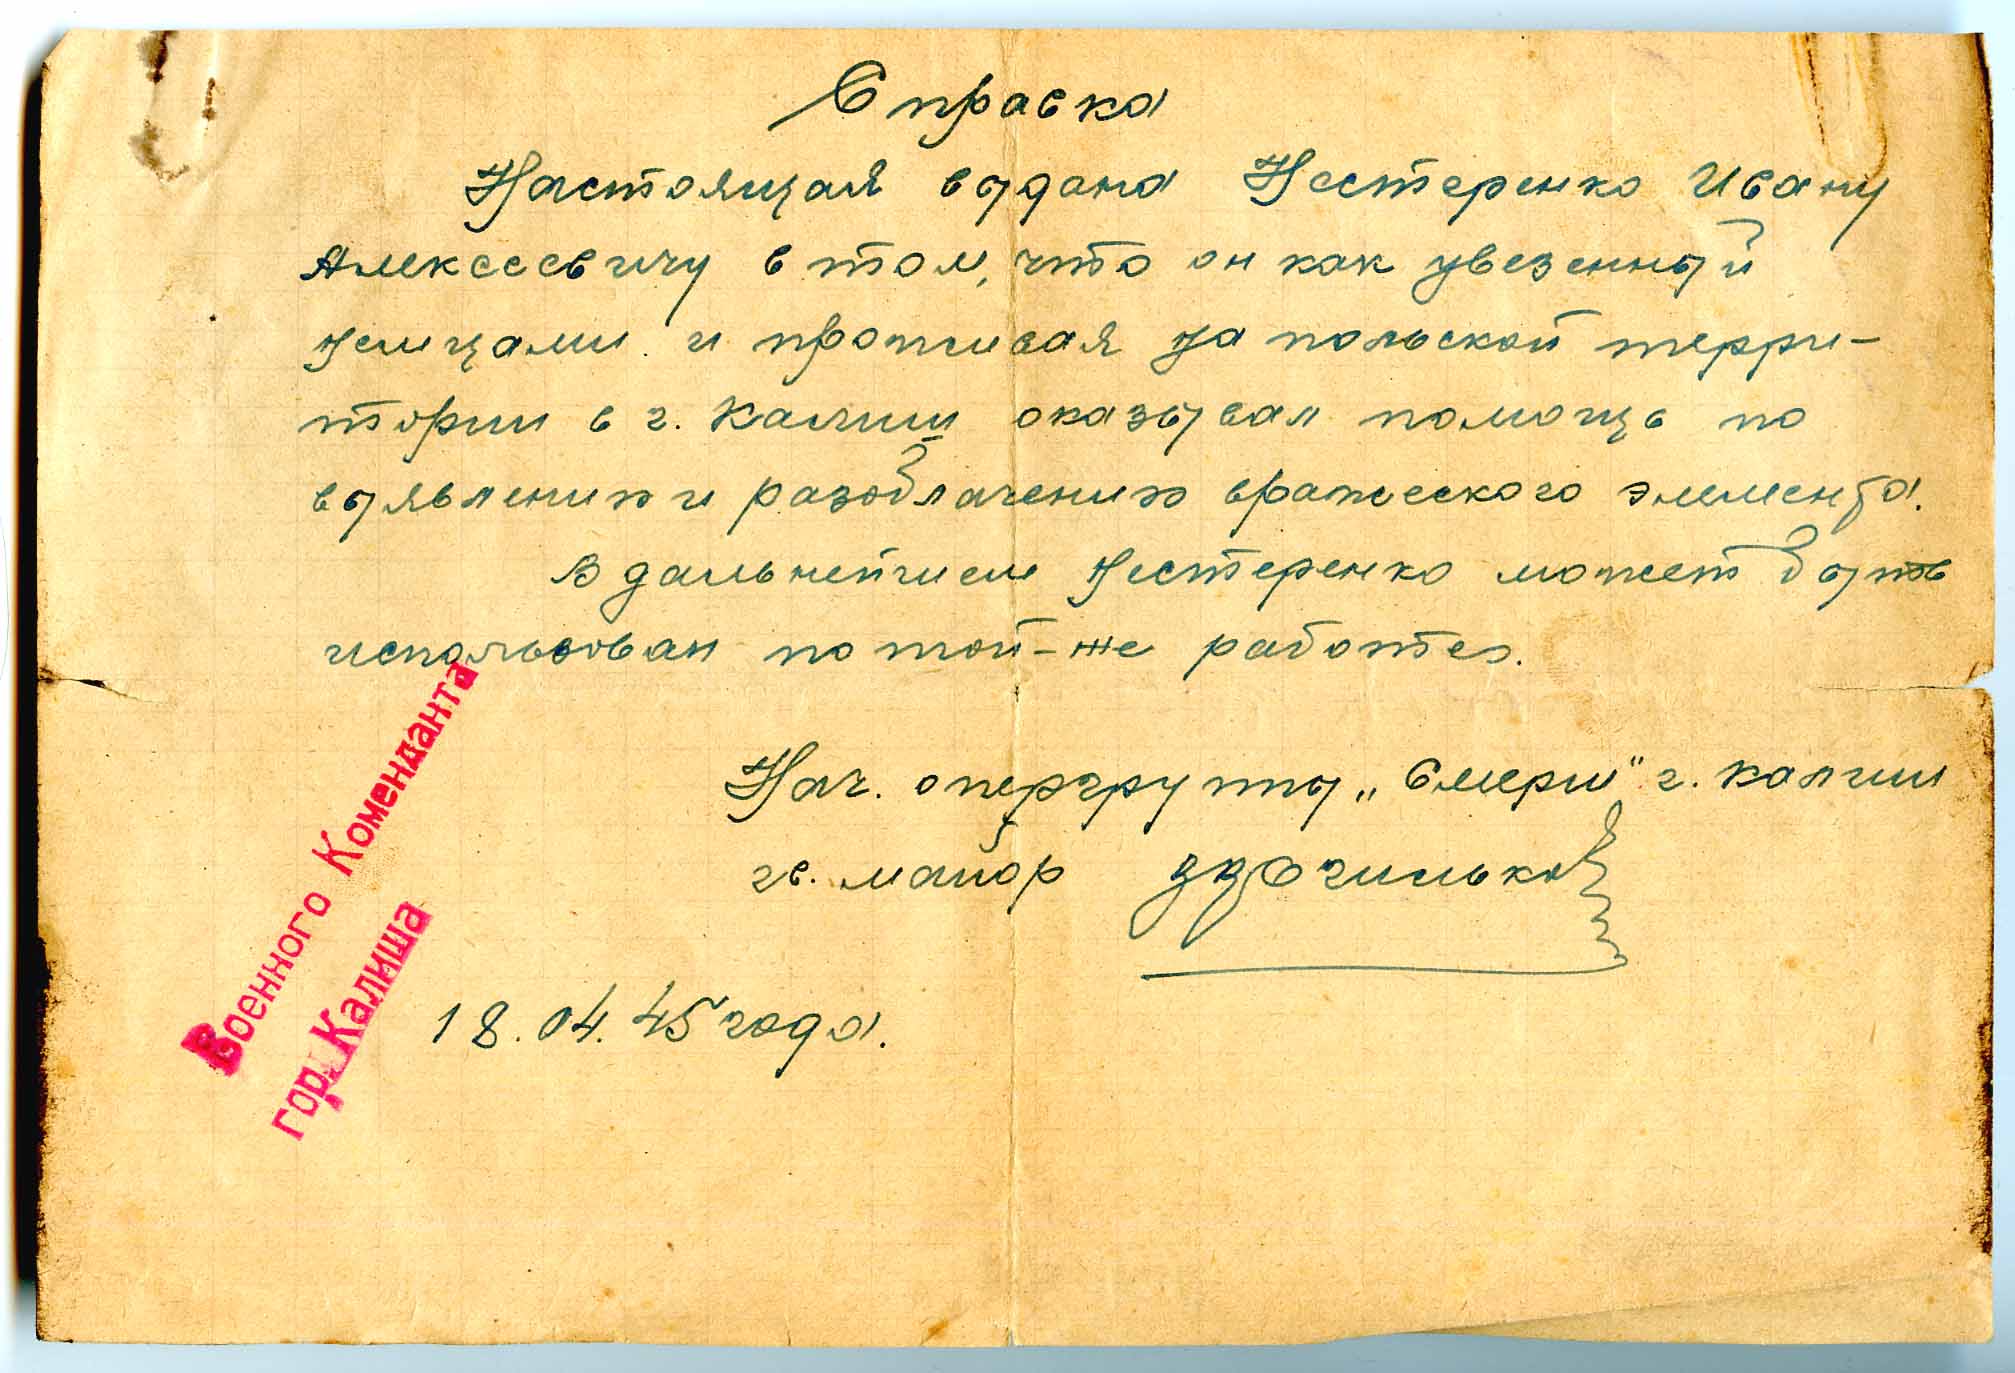 Справка
Настоящая выдана Нестеренко Ивану
Алексеевичу в том, что он как увезенный
немцами и проживая на польской терри-
тории в г. Калиш оказывал помощь по
выявлению и разоблачению вражеского элемента.
В дальнейшем Нестеренко может быть
использован по той-же работе.
Нач. опергруппы „Смерш" г. Калиш
гв. майор
18.04.45 года.
Военного Коменданта
гор. Калиша